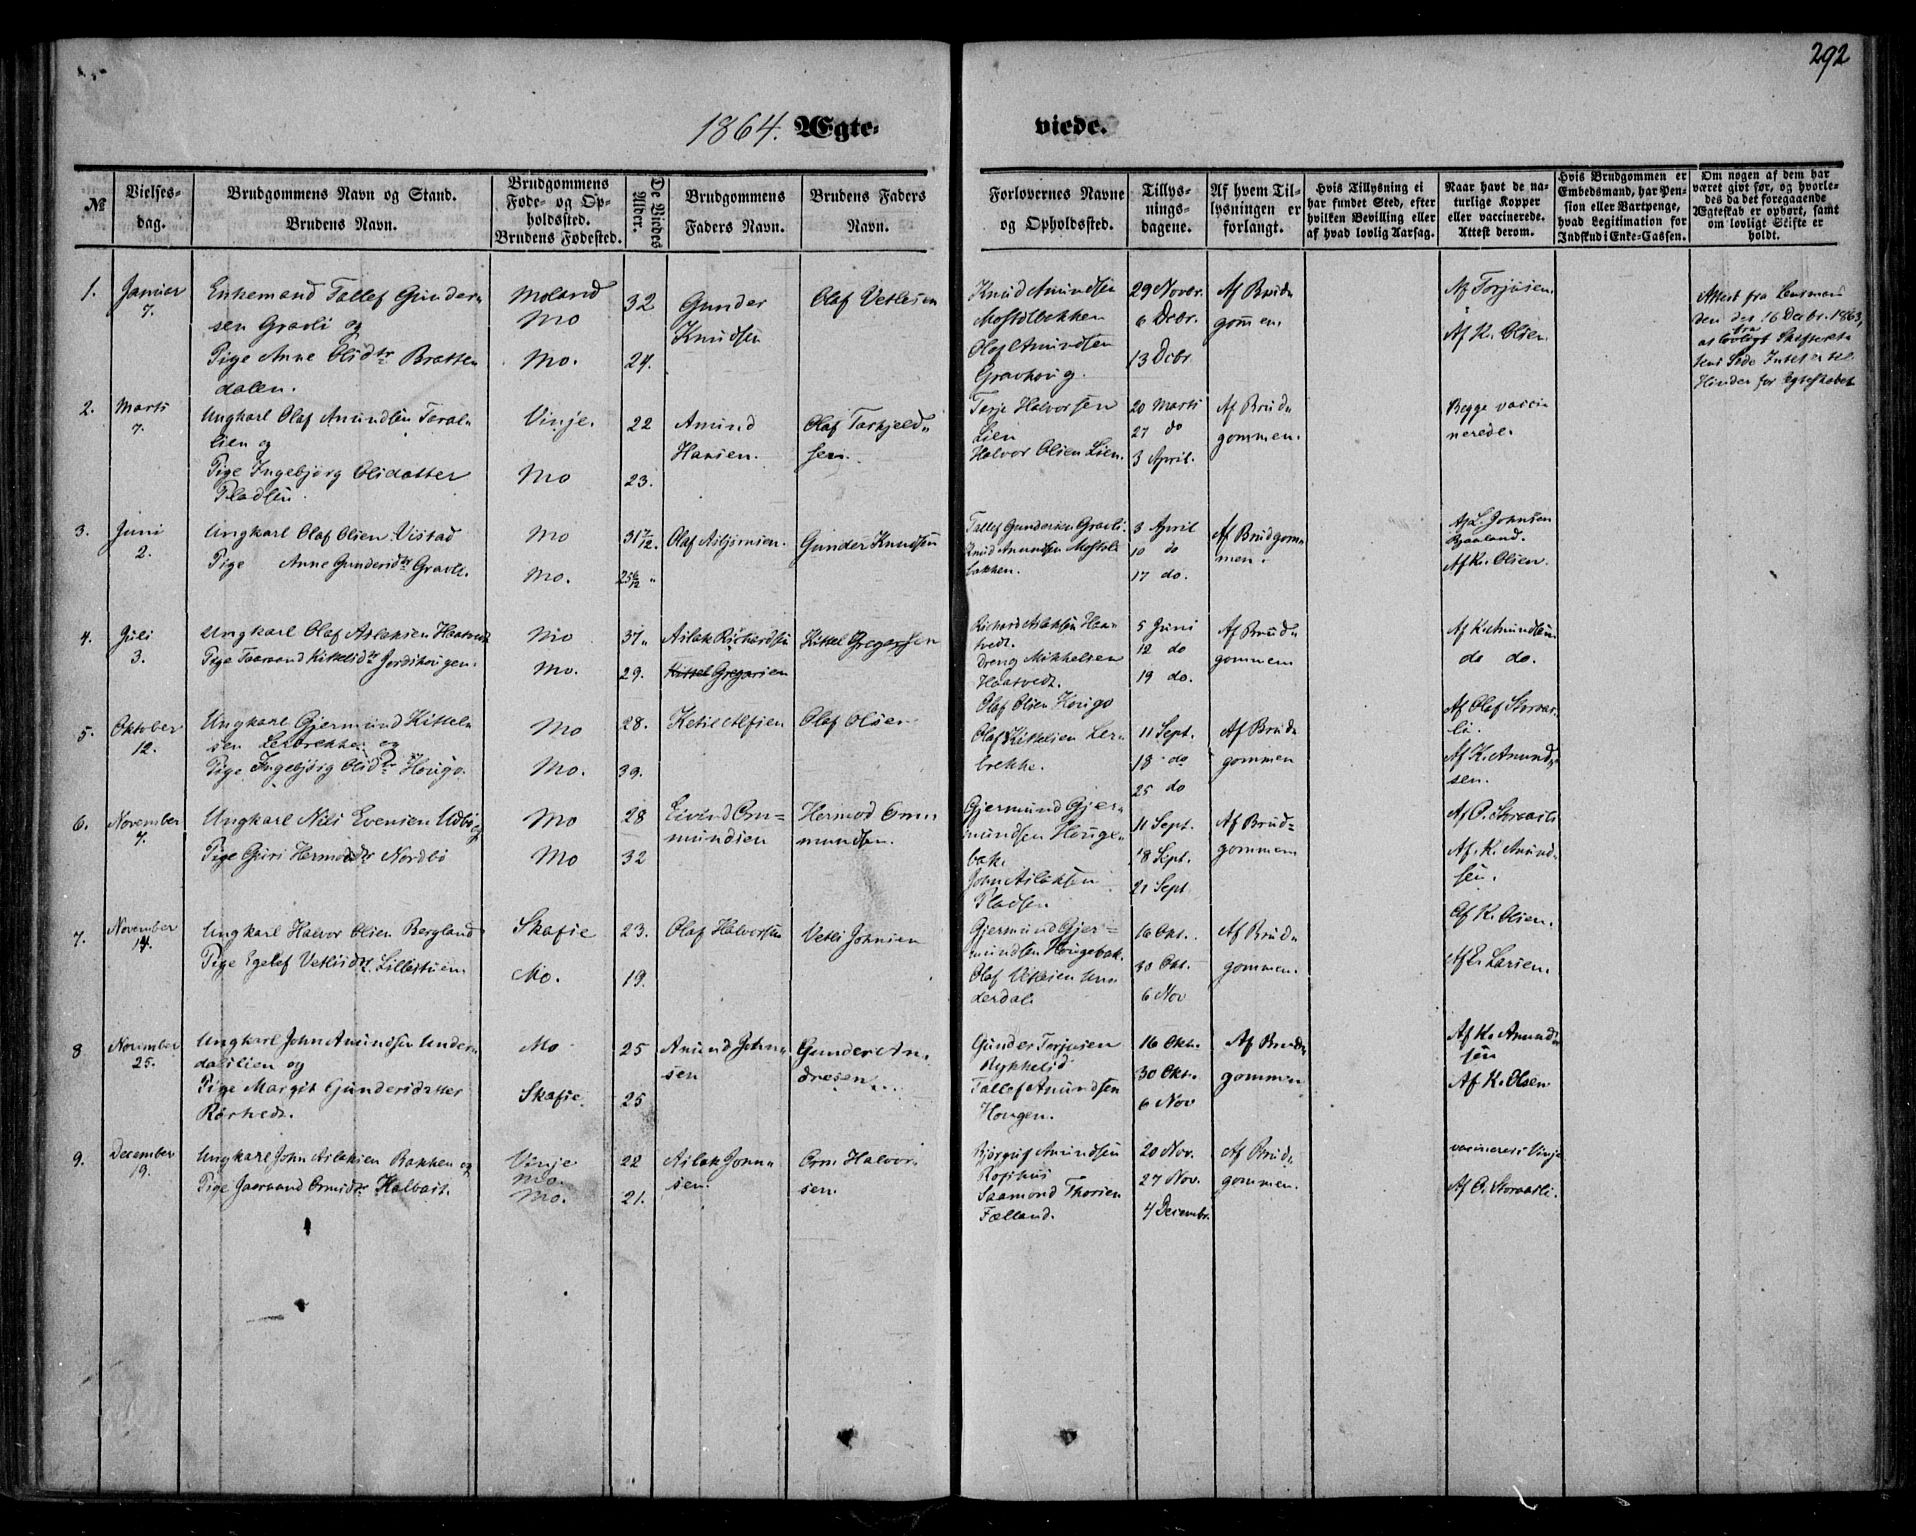 292
1864. Ægte-
viede.
№
Vielses-
dag.
Brudgommens Navn og Stand.
Brudens Navn.
Brudgommens
Føde- og Op-
holdssted.
Brudens Fødested.
De Viedes
Alder.
Brudgommens
Faders Navn.
Brudens Faders
Navn.
Forlovernes Navne
og Opholdssted.
Tillys-
nings-
dagene.
Af hvem Til-
lysningen er
forlangt.
Hvis Tillysning ei
har fundet Sted, efter
hvilken Bevilling eller
af hvad lovlig Aarsag.
Naar havt de na-
turlige Kopper
eller vaccinerede.
Attest derom.
Hvis Brudgommen er
Embedsmand, har Pen-
sion eller Vartpenge,
hvad Legitimation for
Indskud i Enke-Cassen.
Om nogen af dem har
været givt før, og hvorle-
des da det foregaaende
Ægteskab er ophørt, samt
om lovligt Skifte er
holdt.
1.
Januar
7.
Enkemand Tallef Gunder-
sen Gravli og
Pige Anne Olidtr Bratten
dalen.
Moland
Mo
Mo.
32
24.
Gunder
Knudsen
Olaf Vetlesen
Knud Amundsen
Mostølbakken
Olaf Amundsen
Gravhoug.
29 Novbr.
6 Decbr.
13 Dcbr
Af Brud-
gommen
Af Torjusen
Af K. Olsen.
Attest fra Lensman
den der 16 Decbr. 1863,
at fra lovligt Skifterets
Side Intet er til
Hinder for Egteskabet
2.
Marts
7.
Ungkarl Olaf Amundsen Taral-
lien og
Pige Ingebjørg Olsdatter
Pladsen.
Vinje.
Mo
22
23.
Amund
Hansen.
Olaf Tarkjeld-
sen.
Tarje Halvorsen
Lien
Halvor Olsen Lien.
20 Marts
27 do
3 April.
Af Brud-
gommen.
Begge vacci-
nerede.
3.
Juni
2.
Ungkarl Olaf Olsen Vistad
Pige Anne Gundersdtr Gravli.
Mo
Mo.
31 7/12.
25 6/12 "
Olaf Asbjørnsen.
Gunder Knudsen
Tallef Gundersen Gravli.
Knud Amundsen Mostøl-
bakken.
3 April
10 do
17 do.
Af Brudgom-
men.
Af L. Johnsen
Bjaaland.
Af K. Olsen.
4.
Juli
3.
Ungkarl Olaf Aslaksen Haatvedt
Pige Taarand Kittelsdtr Jordshougen.
Mo
Mo.
37 "
29.
Aslak Richardsen
Kittel Gregarsen
Kittel Gregersen
Richard Aslaksen Haa-
tvedt.
Dreng Mikkelsen
Haatvedt.
5 Juni
12 do
19 do.
Af Brud-
gommen
Af K. Amundsen
do do.
5.
Oktober
12.
Ungkarl Gjermund Kittel-
sen Lerbrekke og
Pige Ingebjørg Olsdtr Hougo.
Mo
Mo.
28.
39.
Ketil Alfsen
Olaf Olsen
Olaf Olsen Hougo
Olaf Kittelsen Ler-
brekke.
11 Sept.
18 do
25 do
Af Brud-
gommen
Af Olaf Storaas-
li.
Af K. Amund-
sen.
6.
November
7.
Ungkarl Nils Evensen Udbø og
Pige Guri Hermodsdtr Nordbø
Mo
Mo
28
32
Eivind Orm-
mundsen
Hermod Orm-
mundsen.
Gjermund Gjer-
mundsen Houge-
bak.
John Aslaksen
Pladsen
11 Sept.
18 Sept.
21 Sept
Af Brud-
gommen
Af O. Storaasli
Af. K. Amund-
sen.
7.
November
14.
Ungkarl Halvor Olsen Bergland
Pige Egelef Vetlisdtr Lillestuen.
Skafse
Mo.
23.
19.
Olaf Halvorsen
Vetli Johnsen
Gjermund Gjer-
mundsen Hougebak.
Olaf Vetlesen Un-
derdal.
16 Okt.
30 Okt.
6 Nov
Af Brud-
gommen.
Af K. Olsen.
Af L. Larsen.
8
November
25.
Ungkarl John Amundsen Under-
dalslien og
Pige Margit Gundersdatter
Rørtvedt.
Mo
Skafse.
25
25
Amund John-
sen
Gunder An-
dresen.
Gunder Torjusen
Nykkelid
Tallef Amundsen
Hougen.
16 Okt.
30 Okt.
6 Nov
Af Brud-
gommen
Af K. Amund-
sen
Af K. Olsen
9.
December
19.
Ungkarl John Aslaksen Bakken og
Pige Jaarand Ormsdtr Kalvast.
Vinje
Mo.
Mo.
22
21.
Aslak John-
sen.
Orm Halvor-
sen.
Bjørguf Amundsen
Rosthus
Saamond Thorsen
Fælland.
20 Nov.
27 Nov.
4 Decembr.
Af Brud-
gommen.
vaccineret i Vinje
Af O. Storaasli.